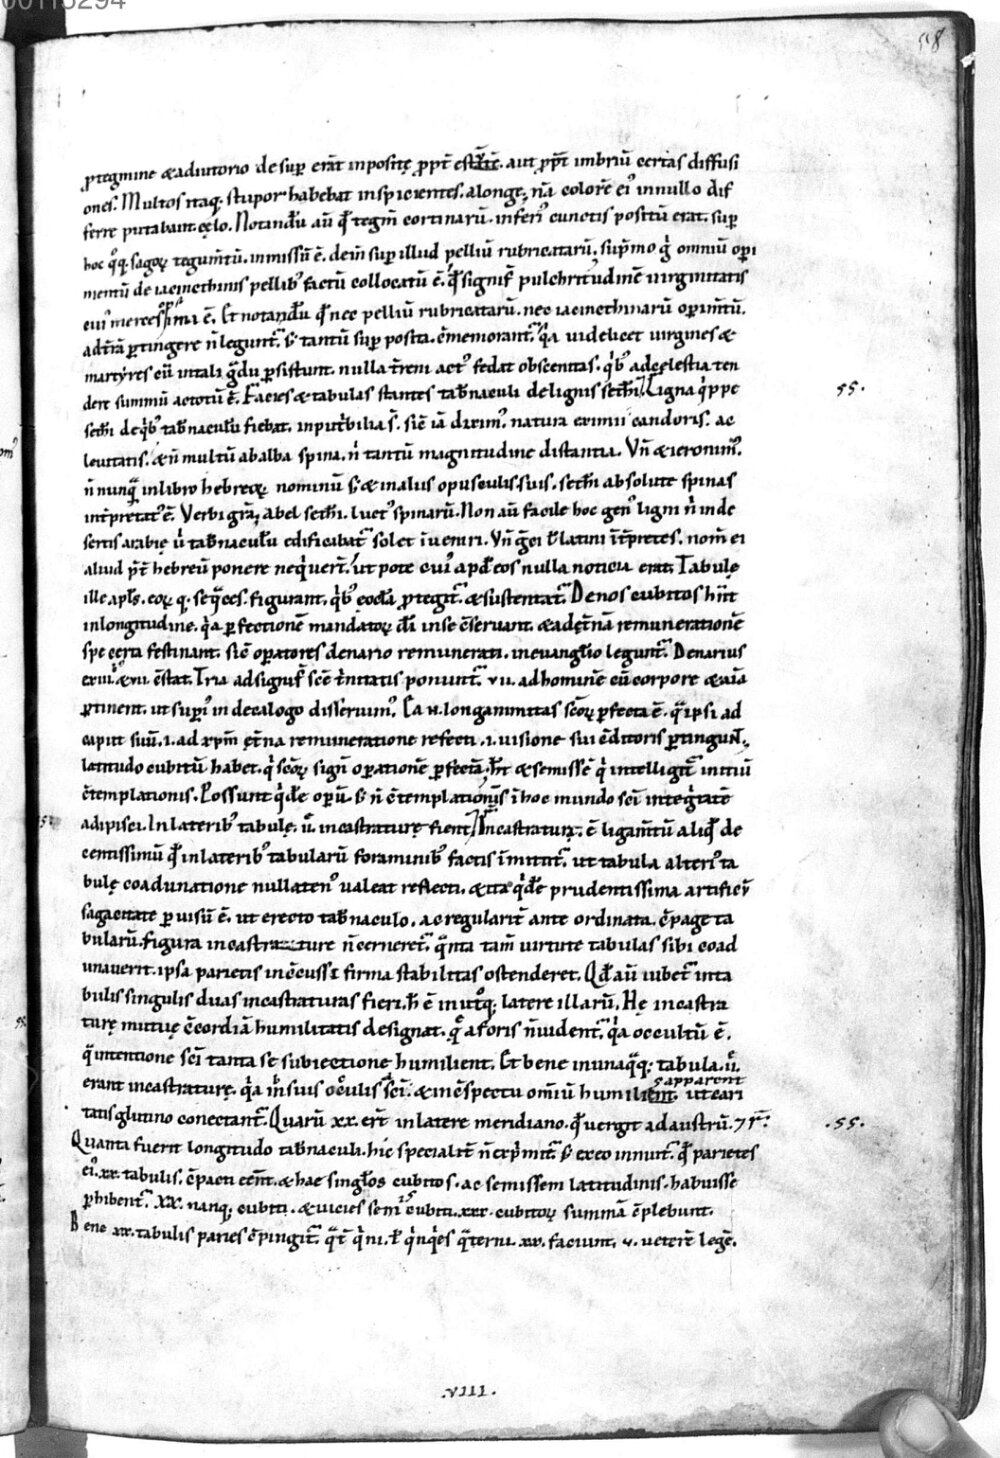 00113294
58
ꝓtegmine &adiutorio desuꝑ erāt inpositę ꝓpt̄ estātē. aut ꝓpt̄ imbriū certas diffusi
ones. Multos itaq; stupor habebat inspicientes. alonge, nā colorē eiꝰ innullo dif
ferre putabant cęlo. Notandū aū qđ tegm̄ cortinarū. inferiꝰ cunctis positū erat. suꝑ
hoc q̊q; sagoꝝ tegum̄tū. inmissū ē. dein̄ suꝑ illud pelliū rubricatarū. sup̄mo g̊ omniū oꝑi
mentū de iacinthinis pellibꝰ factū collocatū ē. qđ signif̄ pulchritudinē uirginitatis
Et notandū qđ nec pelliū rubricatarū. nec iacinthinarū oꝑim̄tū.
adt̄rā ꝑtingere n̄ legunt᷑. sꝫ tantū suꝑ posita. ēmemorant᷑. q̇a uidelicet uirgines &
martyres cū intali g̊du ꝑsistunt. nulla t̄reni actꝰ fedat obscenitas. q̇bꝰ adcęlestia ten
dere summū actotū ē. Facies & tabulas stantes tab̄naculi delignis seth̄i. Ligna q̇ppe
55.
seth̄i deq̇bꝰ tab̄naculū fiebat. inputribilia s̄. sic̄ iā diximꝰ. natura eximii candoris. ac
leuitatis. & n̄ multū abalba spina. n̄ tantū magnitudine distantia. Vn̄ & ieronimꝰ.
n̄ nunq̄ inlibro hebreoꝝ nominū sꝫ & inaliis opusculis suis. seth̄i absolute spinas
int̄pretatꝰ ē. Verbi gr̄a, abel seth̄i. luctꝰ spinarū. Non aū facile hoc genꝰ ligni n̄ inde
sertis arabię ū tab̄naculū edificabat᷑ solet īueniri. Vn̄ greci ł latini īt̄pretes. nom̄ ei
aliud p̄t̄ hebreū ponere neq̇uer̄t. ut pote cuiꝰ apđ eos nulla noticia erat. Tabulę
ille apl̄s. eoꝝ q; seq̄ces. figurant. q̇bꝰ ęccl̄a ꝓtegit᷑. & sustentat᷑. Denos cubitos h̄nt
inlongitudine. q̇a ꝑfectionē mandatoꝝ dī inse c̄seruant. & adęt̄nā remunerationē
spe certa festinant. sic̄ oꝑatores denario remunerati. inevangl̄io legunt᷑. Denarius
exiii. & vii. c̄stat. Tria adsignif̄ scē t̄nitatis ponunt᷑. vii. ad hominē cū corpore & aīa
ꝑtinent. ut supiꝰ in decalogo disseruimꝰ. Ea n. longanimitas sc̄oꝝ ꝑfecta ē. q̄ ipsi ad
caput suū. i. ad xp̄m ęt̄na remuneratione refecti. i. uisione sui c̄ditoris ꝑtingūt.
latitudo cubitū habet. q̇ sc̄oꝝ sign̄ oꝑationē ꝑfectā. h̄t & semissē q̇ intelligit᷑ initiū
c̄templationis. Possunt q̇dē oꝑū. sꝫ n̄ c̄templationis īhoc mundo sc̄i integ̊tatē
adipisci. Inlateribꝰ tabulę. ū. incastraturę fient. Incastratura. ē ligam̄tū aliqđ de
centissimū qđ inlateribꝰ tabularū foraminibꝰ factis īmittit᷑. ut tabula alteriꝰ ta
bulę coadunatione nullatenꝰ ualeat reflecti. & ita q̇dē prudentissima artificū
sagacitate ꝑuisū ē. ut erecto tab̄naculo. ac regularit̄ ante ordinata. c̄page ta
bularū. figura incastrature n̄ cerneret᷑. q̄nta tam̄ uirtute tabulas sibi coad
unauerit. ipsa parietis inc̄cussa firma stabilitas ostenderet. Qđ aū iubet᷑ inta
bulis singulis duas incastraturas fieri. h̄ ē inut̊q; latere illarū. Hę incastra
turę mutuę c̄cordiā humilitatis designat. q̄ aforis n̄ uident᷑. q̇a occultū ē.
q̄ intentione sc̄i tanta se subiectione humilient. Et bene inunaq̄q; tabula. ii.
erant incastraturę. q̇a in̄ suis oculis sc̄i. & inc̄spectu om̄iū humilient. ut cari
apparent
tatis glutino conectant᷑. Quarū xx. er̄t inlatere meridiano. qđ uergit ad austrū. 7 r̄.
.55.
Quanta fuerit longitudo tab̄naculi. hic specialit̄ n̄ exp̄mit᷑. sꝫ exeo innuit᷑. qđ parietes
eiꝰ. xx. tabulis. c̄pacti eēnt. & hae singl̄os cubitos. ac semissem latitudinis. habuisse
ꝑhibent᷑. XX. nanq; cubiti. & uicies semis cubiti. xxx. cubitoꝝ summā c̄plebunt.
Bene xx. tabulis paries c̄pingit᷑. q̄t̄ q̇ni. ł q̇nq̇es q̄terni. xx. faciunt. v. ueterē legē.
.VIII.